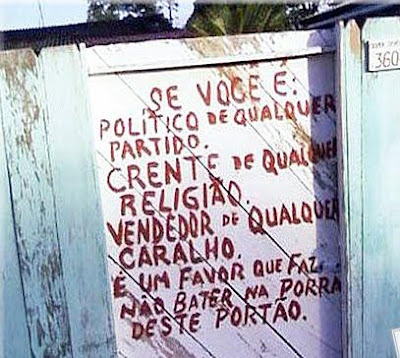 SE VOCÊ É:
POLÍTICO DE QUALQUER
PARTIDO.
CRENTE DE QUALQUER
RELIGIÃO.
VENDEDOR DE QUALQUER
CARALHO.
É UM FAVOR QUE FAZ
NÃO BATER NA PORRA
DESTE PORTÃO.
360